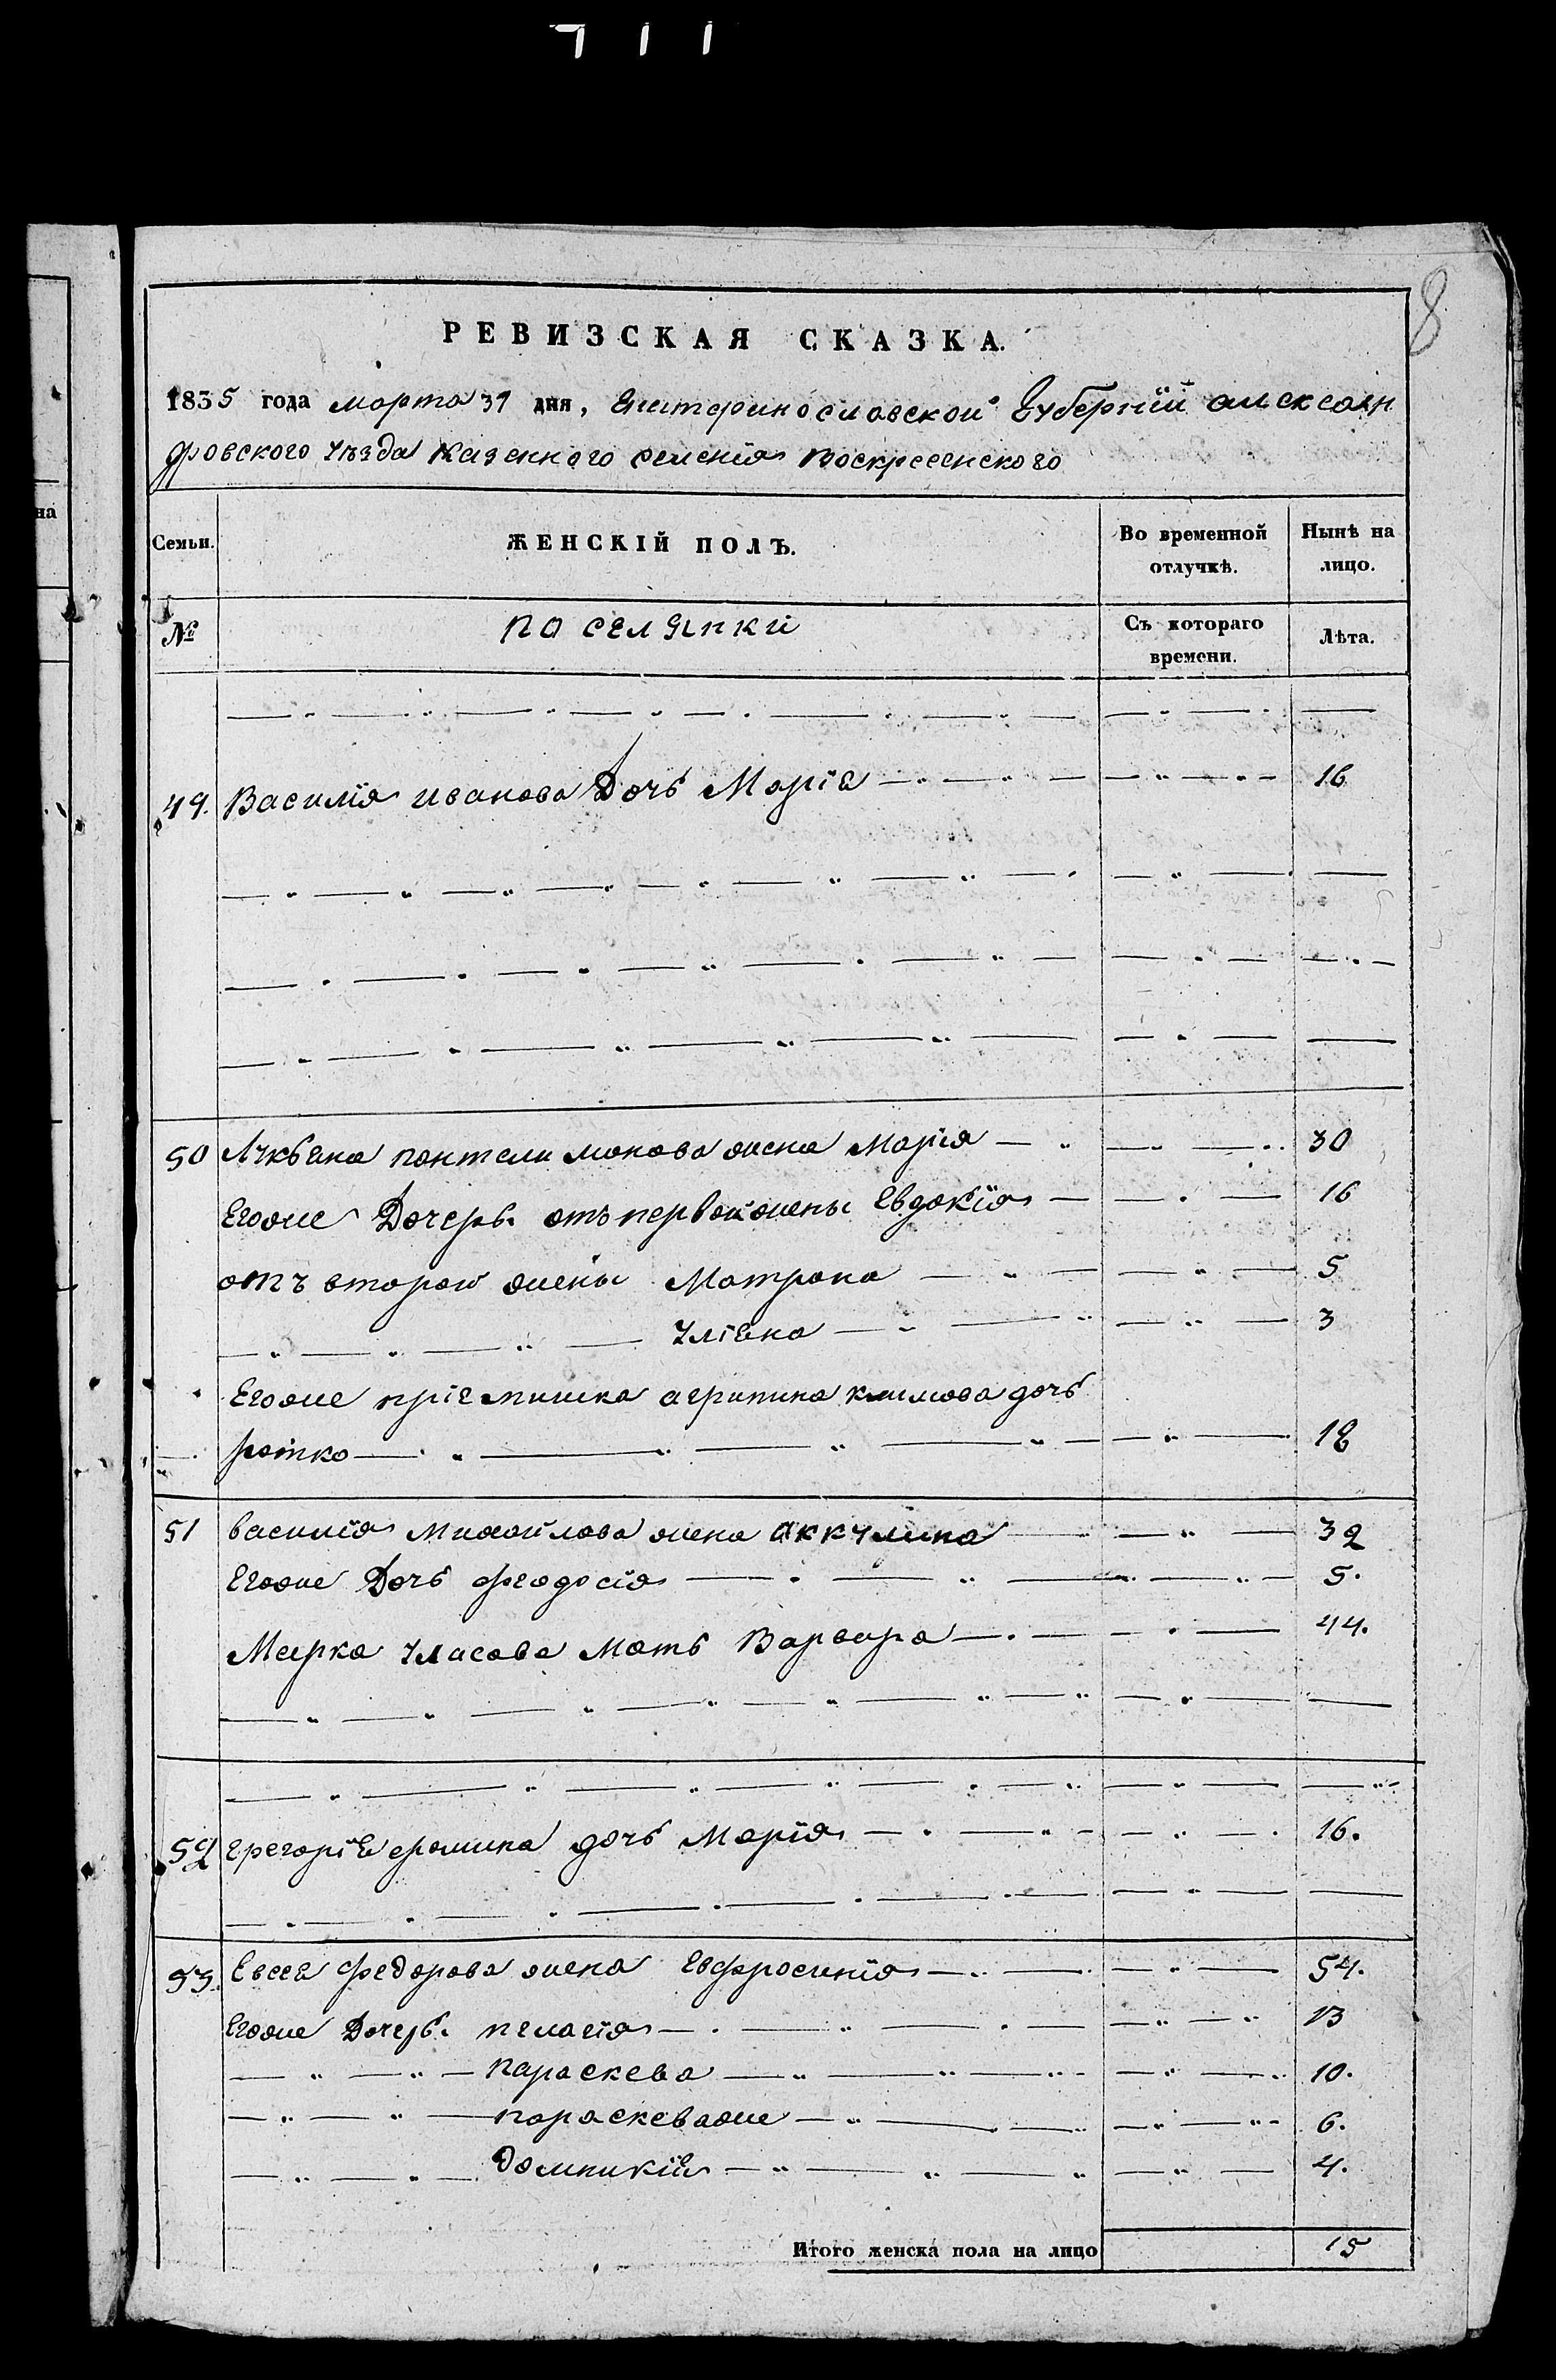 711
8
РЕВИЗСКАЯ СКАЗКА.
1835 года марта 31 дня, Екатеринославской Губернии алексан
дровского уѣзда казенного селения воскресенского
на
Семьи. ЖЕНСКІЙ ПОЛЪ. Во временной отлучкѣ. Нынѣ на лицо.
№ поселянки Съ котораго времени. Лѣта.
49. Василия иванова Дочь Марiе 16
50 Лукьяна пантелимонова жена Марiя 30
Егоже Дочерь. отъ первой жены Евдокїя 16
отъ второй жены Матрона 5
Улiяна 3
Егоже прiемишка агрипина климова дочь
ротко 18
51 василїя михайлова жена Аккулина 32
Егоже Дочь феодосiя 5.
Марка уласова мать Варвара 44.
52 грегорiя фомина дочь Марїя 16.
53. Евсея федорова жена Евфросинїя 54.
Егоже Дочерь. пелагiя 13
параскева 10.
параскеваже 6.
домникїя 4.
Итого женска пола на лицо 15